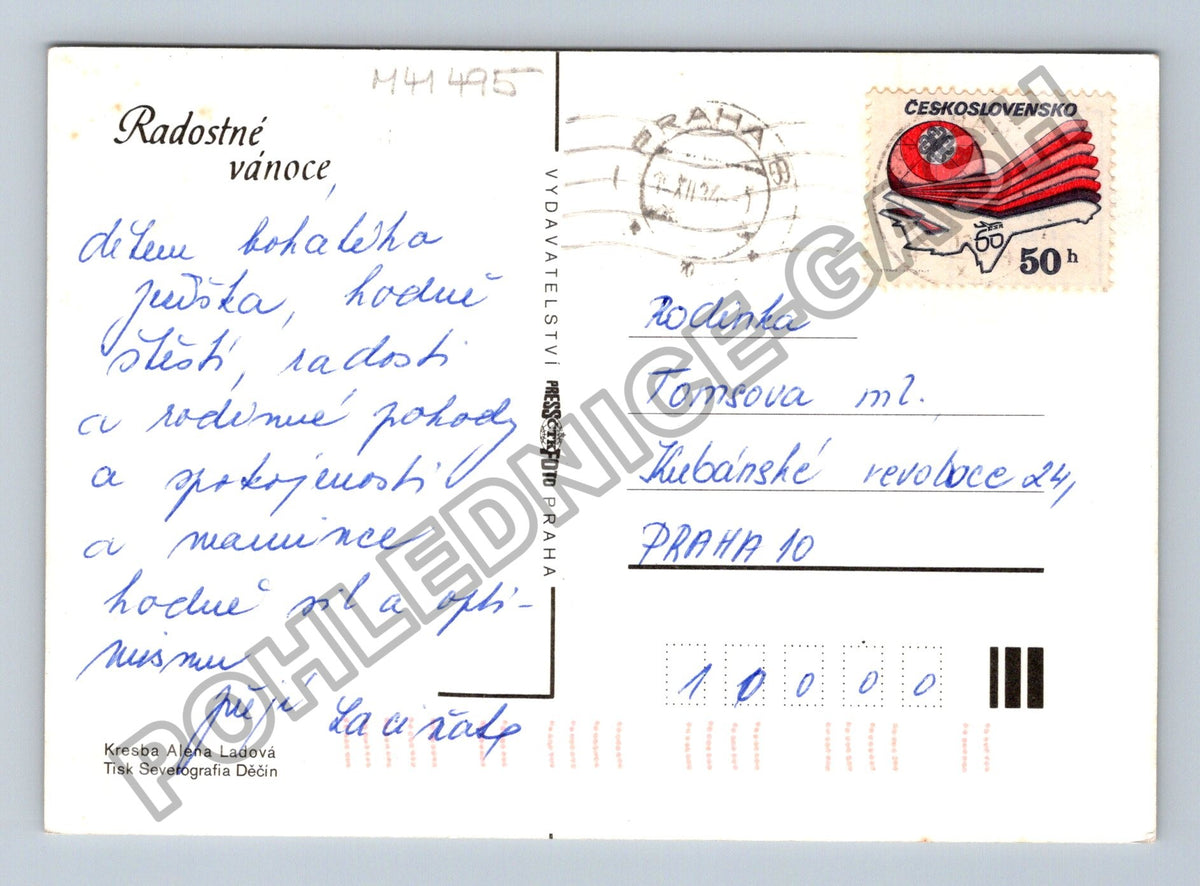 M41495
Radostné
vánoce
dětem bohatého
ježíška, hodně
štěstí, radosti
a rodinné pohody
a spokojenosti
a mamince
hodně sil a opti-
mismu
přejí
Kresba Alena Ladová
Tisk Severografia Děčín
VYDAVATELSTVÍ PRESSFOTO PRAHA
ČTK
PRAHA
ČESKOSLOVENSKO
50 h
Rodinka
Tomsova ml.
Kubánské revoluce 24,
PRAHA 10
1 0 0 0 0
POHLEDNICE-GACH